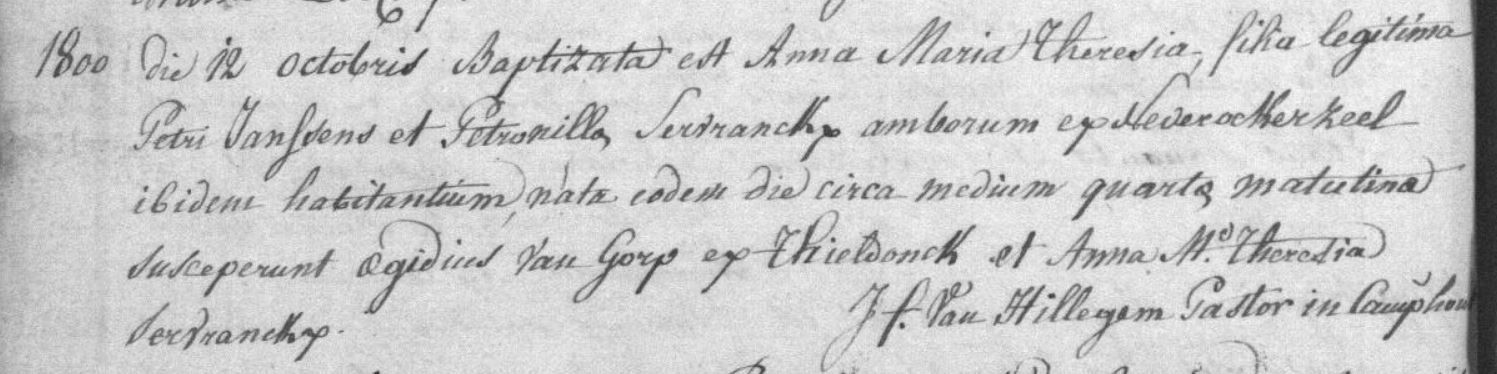 1800 die 12 octobris Baptizata est Anna Maria Theresia, filia legitima
Petri Janssens et Petronilla Servranckx amborum ex Nederockerzeel
ibidem habitantium, nata eodem die circa medium quarta matutina
susceperunt Ægidius Van Gorp ex Thieldonck et Anna M.a Theresia
Servranckx.
J f. Van Hillegem Pastor in Camphout